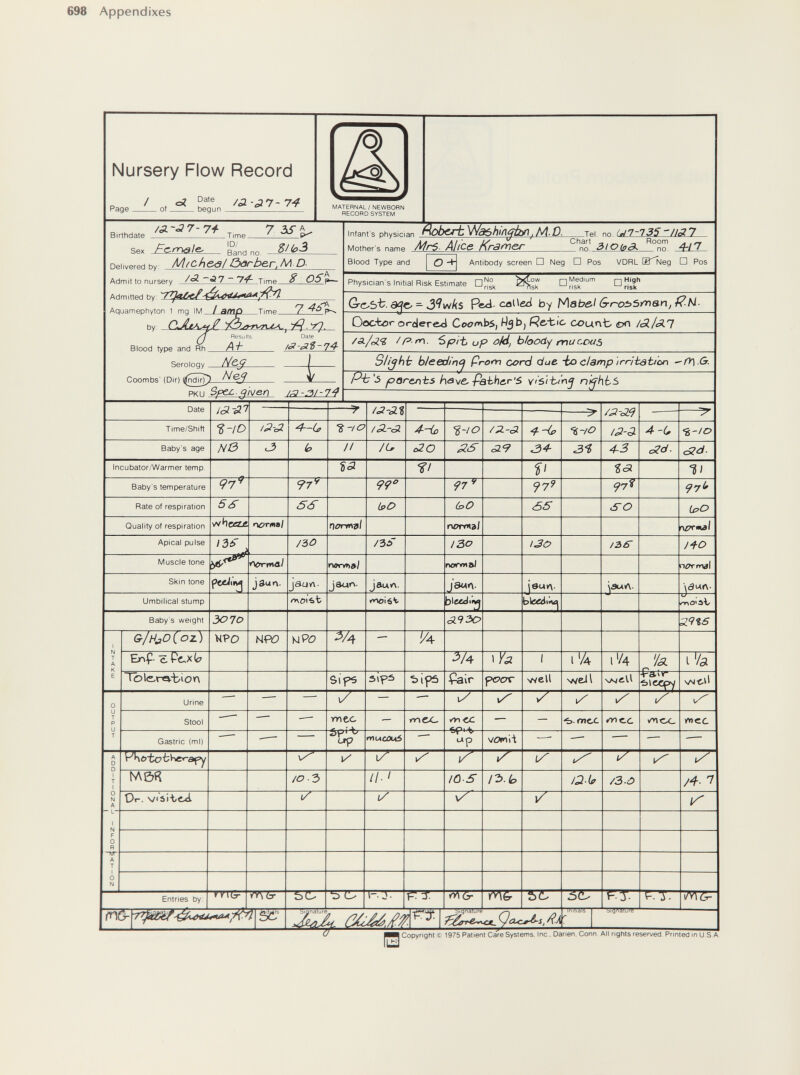 698 Appendixes
Nursery Flow Record
Page 1 of 2 Date begun 12-27-74
MATERNAL / NEWBORN
RECORD SYSTEM
Birthdate 12-27-74 Time 7 35 A
Sex Female ID/ Band no. 8163
Delivered by: Micheal Barber, M.D.
Admit to nursery 12-27-74 Time 8 05 A
Admitted by: Mabel Grossman RN
Aquamephyton 1 mg IM 1 amp Time 7 45 A
by Cheryl R.N.
Results Date
Blood type and Rh A+ 12-28-74
Serology Neg
Coombs' (Dir) (Indir) Neg
PKU Spec. given 12-31-74
Infant's physician Robert Washington, M.D. Tel. no. 617-735-1127
Mother's name Mrs. Alice Kramer Chart no. 31062 Room no. 417
Blood Type and O + Antibody screen ☐ Neg ☐ Pos VDRL ☑ Neg ☐ Pos
Physician's Initial Risk Estimate ☐ No risk ☒ Low risk ☐ Medium risk ☐ High risk
Gest. age = 39wks Ped. called by Mabel Grossman, R.N.
Doctor ordered Coombs, Hgb, Retic count on 12/27
12/28 1 p.m. Spit up old, bloody mucous
Slight bleeding from cord due to clamp irritation - M.G.
Pt's parents have father's visiting nights
Date 12-27 12-28 12-29
Time/Shift 8-10 12-2 4-6 8-10 12-2 4-6 8-10 12-2 4-6 8-10 12-2 4-6 8-10
Baby's age NB 3 6 11 16 20 25 29 34 38 43 2d. 2d.
Incubator/Warmer temp. 82 81 81 82 81
Baby's temperature 97⁹ 97⁸ 99⁰ 97⁹ 97⁹ 97⁸ 97⁶
Rate of respiration 55 55 60 60 55 50 60
Quality of respiration wheeze normal normal normal normal
Apical pulse 135 130 135 130 130 135 140
Muscle tone normal normal normal normal
Skin tone peeling jaun. jaun. jaun. jaun. jaun. jaun. jaun. jaun.
Umbilical stump moist moist bleeding bleeding moist
Baby's weight 3070 2930 2985
INTAKE
G/H₂O (oz) NPO NPO NPO 3/4 — 1/4
Enf c̄ Fe x 6 3/4 1 1/2 1 1 1/4 1 1/4 1/2 1 1/2
Toleration Sips sips sips fair poor well well well fair sleepy well
OUTPUT
Urine — — ✓ — — ✓ ✓ ✓ ✓ ✓ ✓ ✓
Stool — — — mec — mec mec — — s. mec mec mec mec
Gastric (ml) — — — spit up mucous spit up vomit — — — — —
ADDITIONAL INFORMATION
Phototherapy ✓ ✓ ✓ ✓ ✓ ✓ ✓ ✓ ✓ ✓ ✓
MBR 10.3 11.1 10.5 13.6 12.6 13.0 14.7
Dr. visited ✓ ✓ ✓ ✓ ✓
Entries by: MG MG SC SC F.J. F.J. MG MG SC SC F.J. F.J. MG
MG Mabel Grossman RN SC Signature Sealy Childs, RN F.J. Signature Florence Jacobs, RN Initials Signature
Copyright © 1975 Patient Care Systems, Inc., Darien, Conn. All rights reserved. Printed in U.S.A.